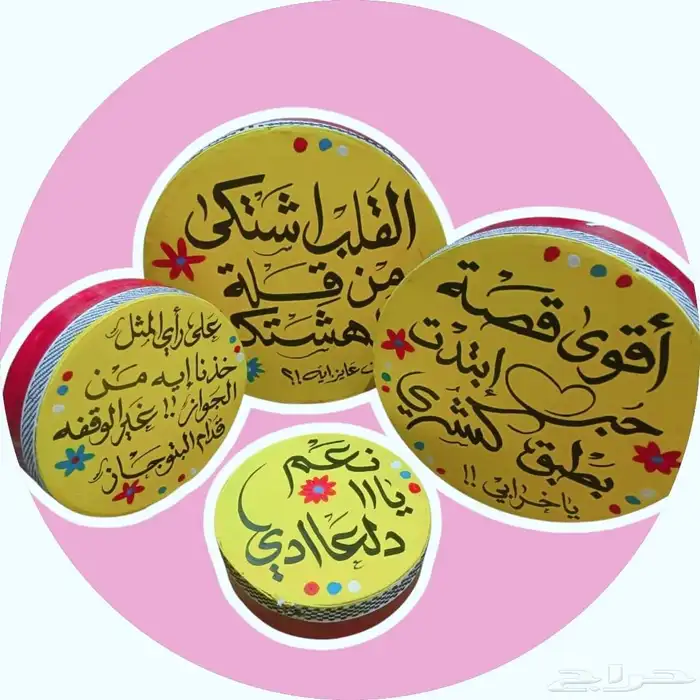 القلب اشتكى
من قلة
عايز ايه ؟!
أقوى قصة
حب ابتدت
بطبق كشري
يا خرابي !!
على رأي المثل
خذنا إيه من
الجواز !! غير الوقفه
قدام البتوجاز
نعم
يااا
دلعاادي
حراج